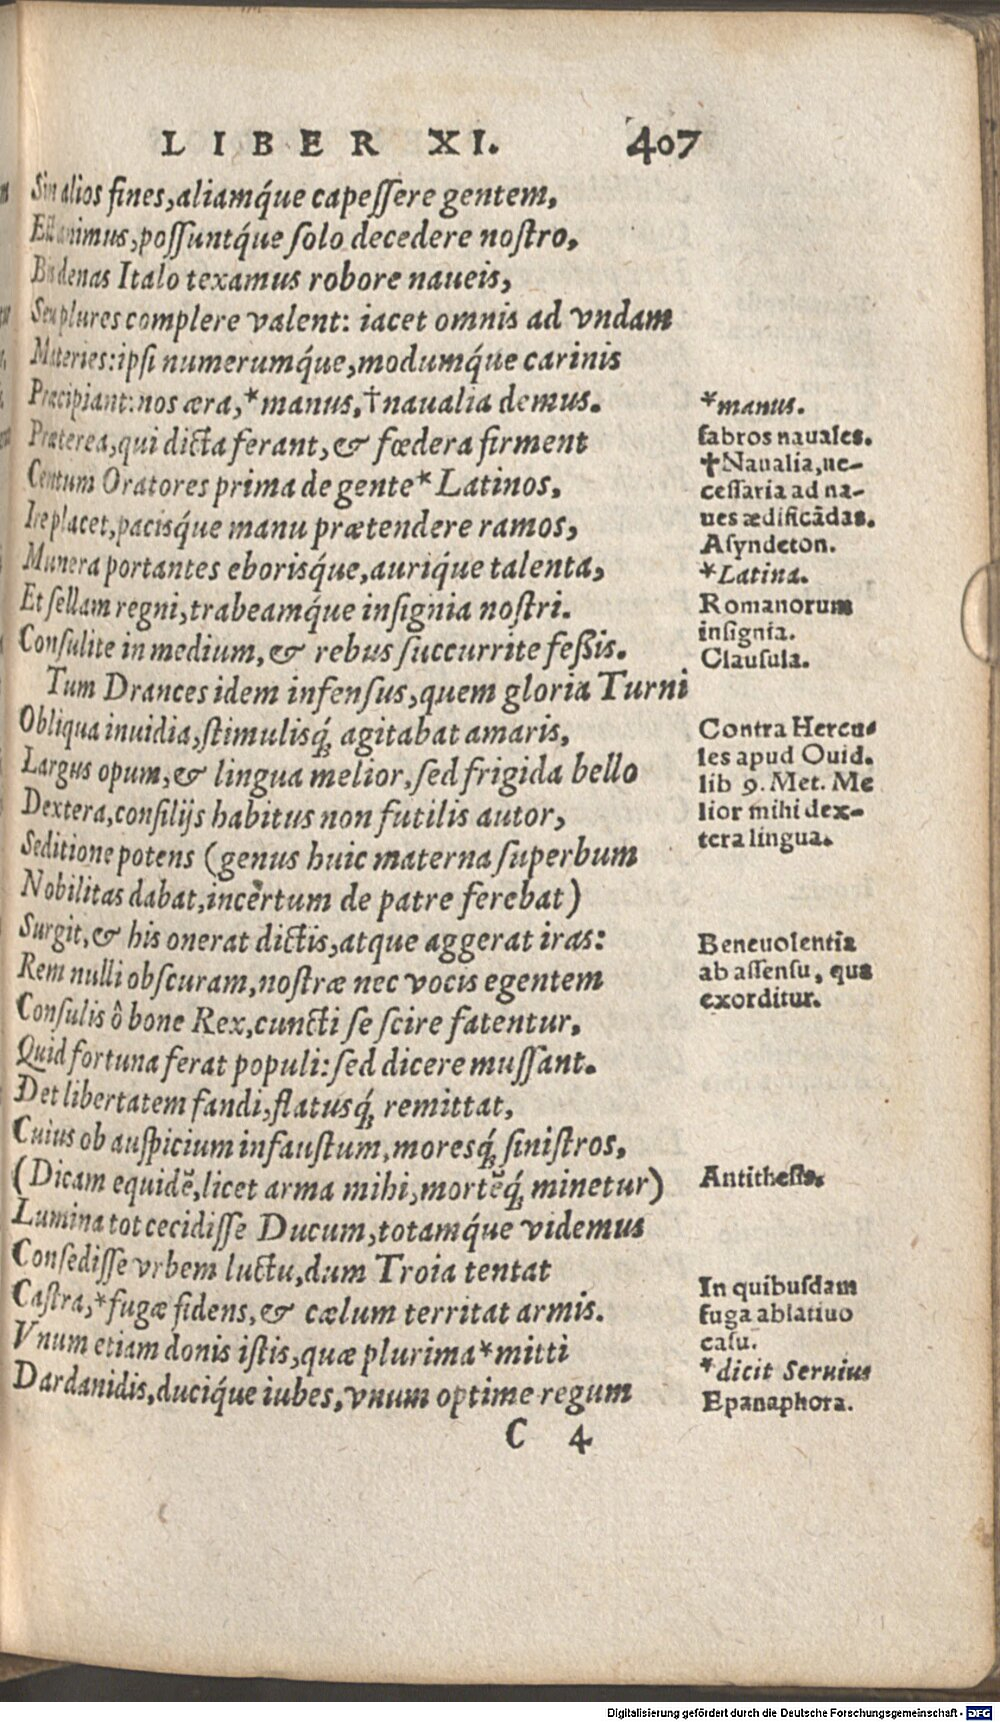 LIBER XI. 407
Sin alios fines, aliamq́ue capeſſere gentem,
Eſt animus, poſſuntq́ue ſolo decedere noſtro,
Bis denas Italo texamus robore naueis,
Seu plures complere valent: iacet omnis ad vndam
Materies: ipſi numerumq́ue, modumq́ue carinis
Præcipiant: nos æra, *manus, †naualia demus.
Præterea, qui dicta ferant, & fœdera firment
Centum Oratores prima de gente* Latinos,
Ire placet, pacisq́ue manu prætendere ramos,
Munera portantes eborisq́ue, auriq́ue talenta,
Et ſellam regni, trabeamq́ue inſignia noſtri.
Conſulite in medium, & rebus ſuccurrite feßis.
Tum Drances idem infenſus, quem gloria Turni
Obliqua inuidia, ſtimulisq́; agitabat amaris,
Largus opum, & lingua melior, ſed frigida bello
Dextera, conſilijs habitus non futilis autor,
Seditione potens (genus huic materna ſuperbum
Nobilitas dabat, incertum de patre ferebat)
Surgit, & his onerat dictis, atque aggerat iras:
Rem nulli obſcuram, noſtræ nec vocis egentem
Conſulis ô bone Rex, cuncti ſe ſcire fatentur,
Quid fortuna ferat populi: ſed dicere muſſant.
Det libertatem fandi, flatusq́; remittat,
Cuius ob auſpicium infauſtum, moresq́; ſiniſtros,
(Dicam equidē, licet arma mihi, mortēq́; minetur)
Lumina tot cecidiſſe Ducum, totamq́ue videmus
Conſediſſe vrbem luctu, dum Troia tentat
Caſtra, *fugæ fidens, & cælum territat armis.
Vnum etiam donis iſtis, quæ plurima *mitti
Dardanidis, duciq́ue iubes, vnum optime regum
C 4
*manus.
fabros nauales.
†Naualia, ne-
ceſſaria ad na-
ues ædificādas.
Aſyndeton.
*Latina.
Romanorum
inſignia.
Clauſula.
Contra Hercu-
les apud Ouid.
lib 9. Met. Me
lior mihi dex-
tera lingua.
Beneuolentia
ab aſſenſu, qua
exorditur.
Antitheſis.
In quibuſdam
fuga ablatiuo
caſu.
*dicit Seruius
Epanaphora.
Digitalisierung gefördert durch die Deutsche Forschungsgemeinschaft - DFG